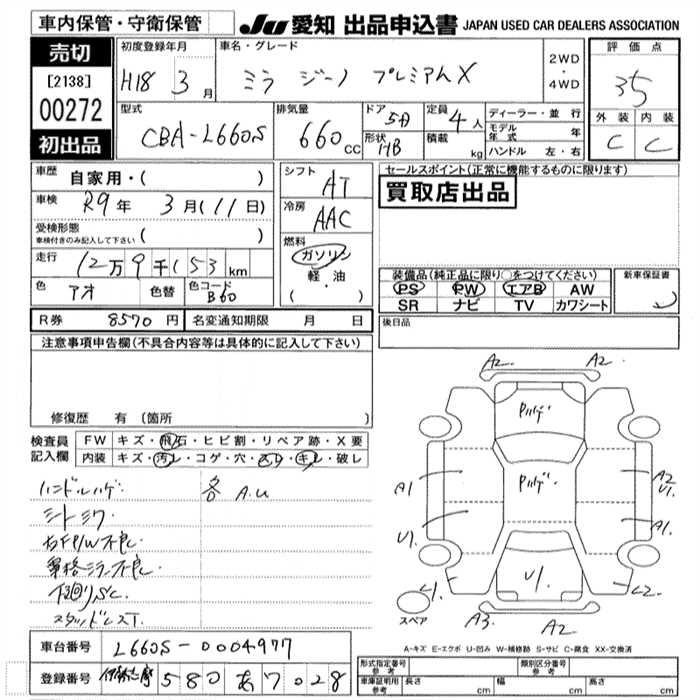 車内保管・守衛保管
JU 愛知 出品申込書 JAPAN USED CAR DEALERS ASSOCIATION
売切
[2138]
00272
初出品
初度登録年月
H18 3 月
車名・グレード
ミラ ジーノ プレミアムX
2WD
・
4WD
評価点
35
外装 内装
C C
型式
CBA-L660S
排気量
660 cc
ドア
5D
形状
HB
定員
4人
積載
kg
ディーラー・並行
モデル年式 年
ハンドル 左・右
車歴
自家用・( )
車検
R9年 3月(11日)
受検形態
車検付きのみ記入して下さい ( )
走行
12万9千153 km
色
アオ
色替
色コード
B60
シフト
AT
冷房
AAC
燃料
ガソリン
軽・油
( ・ )
セールスポイント(正常に機能するものに限ります)
買取店出品
装備品(純正品に限り○をつけてください)
PS PW エアB AW
SR ナビ TV カワシート
新車保証書
後日品
R券 8570 円
名変通知期限 月 日
注意事項申告欄(不具合内容等は具体的に記入して下さい)
修復歴 有 (箇所 )
検査員
記入欄
FW キズ・飛石・ヒビ割・リペア跡・X要
内装 キズ・汚レ・コゲ・穴・スレ・キレ・破レ
ハンドルハゲ
各 A.U
シートシワ
右FP/W不良
下廻りSC
スタッドレスT.
A2 A2
Pハゲ
A1 A2
U1
Pハゲ
U1 A1
U1
A3 A2
スペア
A-キズ E-エクボ U-凹み W-補修跡 S-サビ C-腐食 XX-交換済
車台番号 L660S-0004977
登録番号 伊勢志摩 580 あ 7028
形式指定番号
参考
類別区分番号
参考
車庫証明用
参考
長さ cm
幅 cm
高さ cm